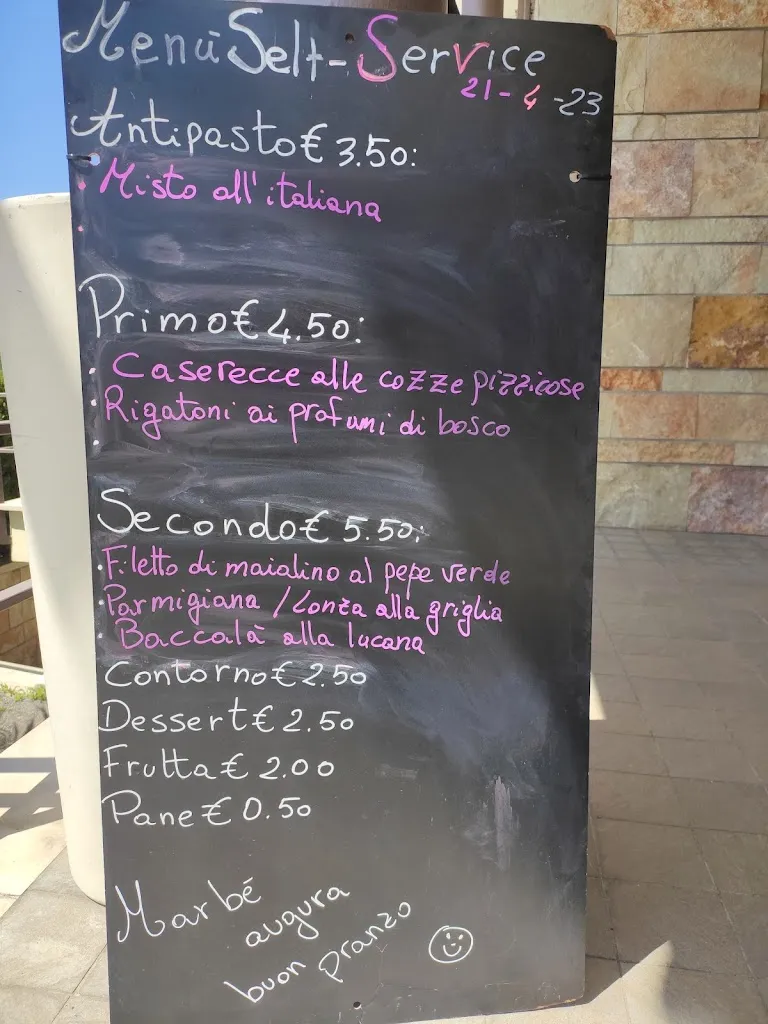 Menù Self-Service
21-4-23
Antipasto € 3.50:
• Misto all'italiana
Primo € 4.50:
• Caserecce alle cozze pizzicose
• Rigatoni ai profumi di bosco
•
Secondo € 5.50:
• Filetto di maialino al pepe verde
• Parmigiana / Lonza alla griglia
• Baccalà alla lucana
Contorno € 2.50
Dessert € 2.50
Frutta € 2.00
Pane € 0.50
Marbé
augura
buon pranzo ☺